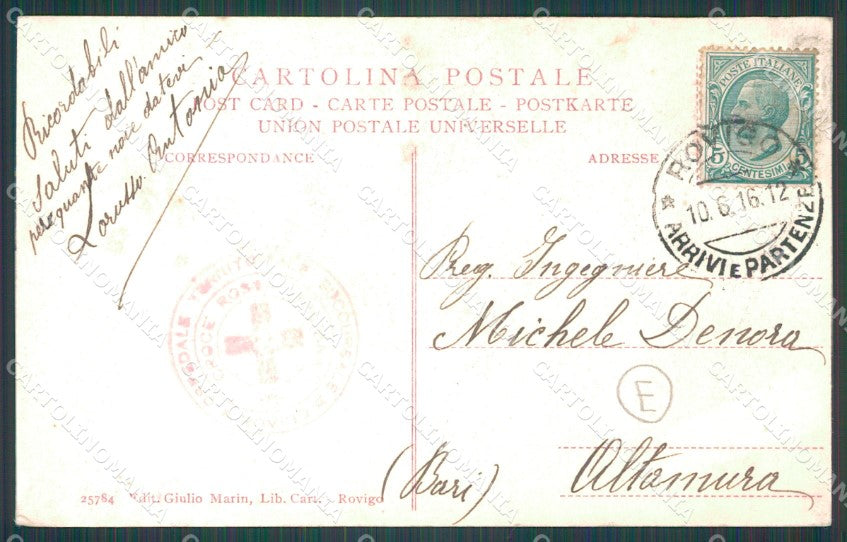 Ricordabili
Saluti dall'amico
per quante noie datevi
Lorusso Antonio
CARTOLINA POSTALE
POST CARD - CARTE POSTALE - POSTKARTE
UNION POSTALE UNIVERSELLE
CORRESPONDANCE
ADRESSE
POSTE ITALIANE
CENTESIMI 5
ROVIGO
10.6.16.12
ARRIVI E PARTENZE
OSPEDALE TERRITORIALE
CROCE ROSSA
Preg. Ingegniere
Michele Denora
E
Altamura
(Bari)
25784 Edit. Giulio Marin, Lib. Cart. - Rovigo
CARTOLINOMANIA